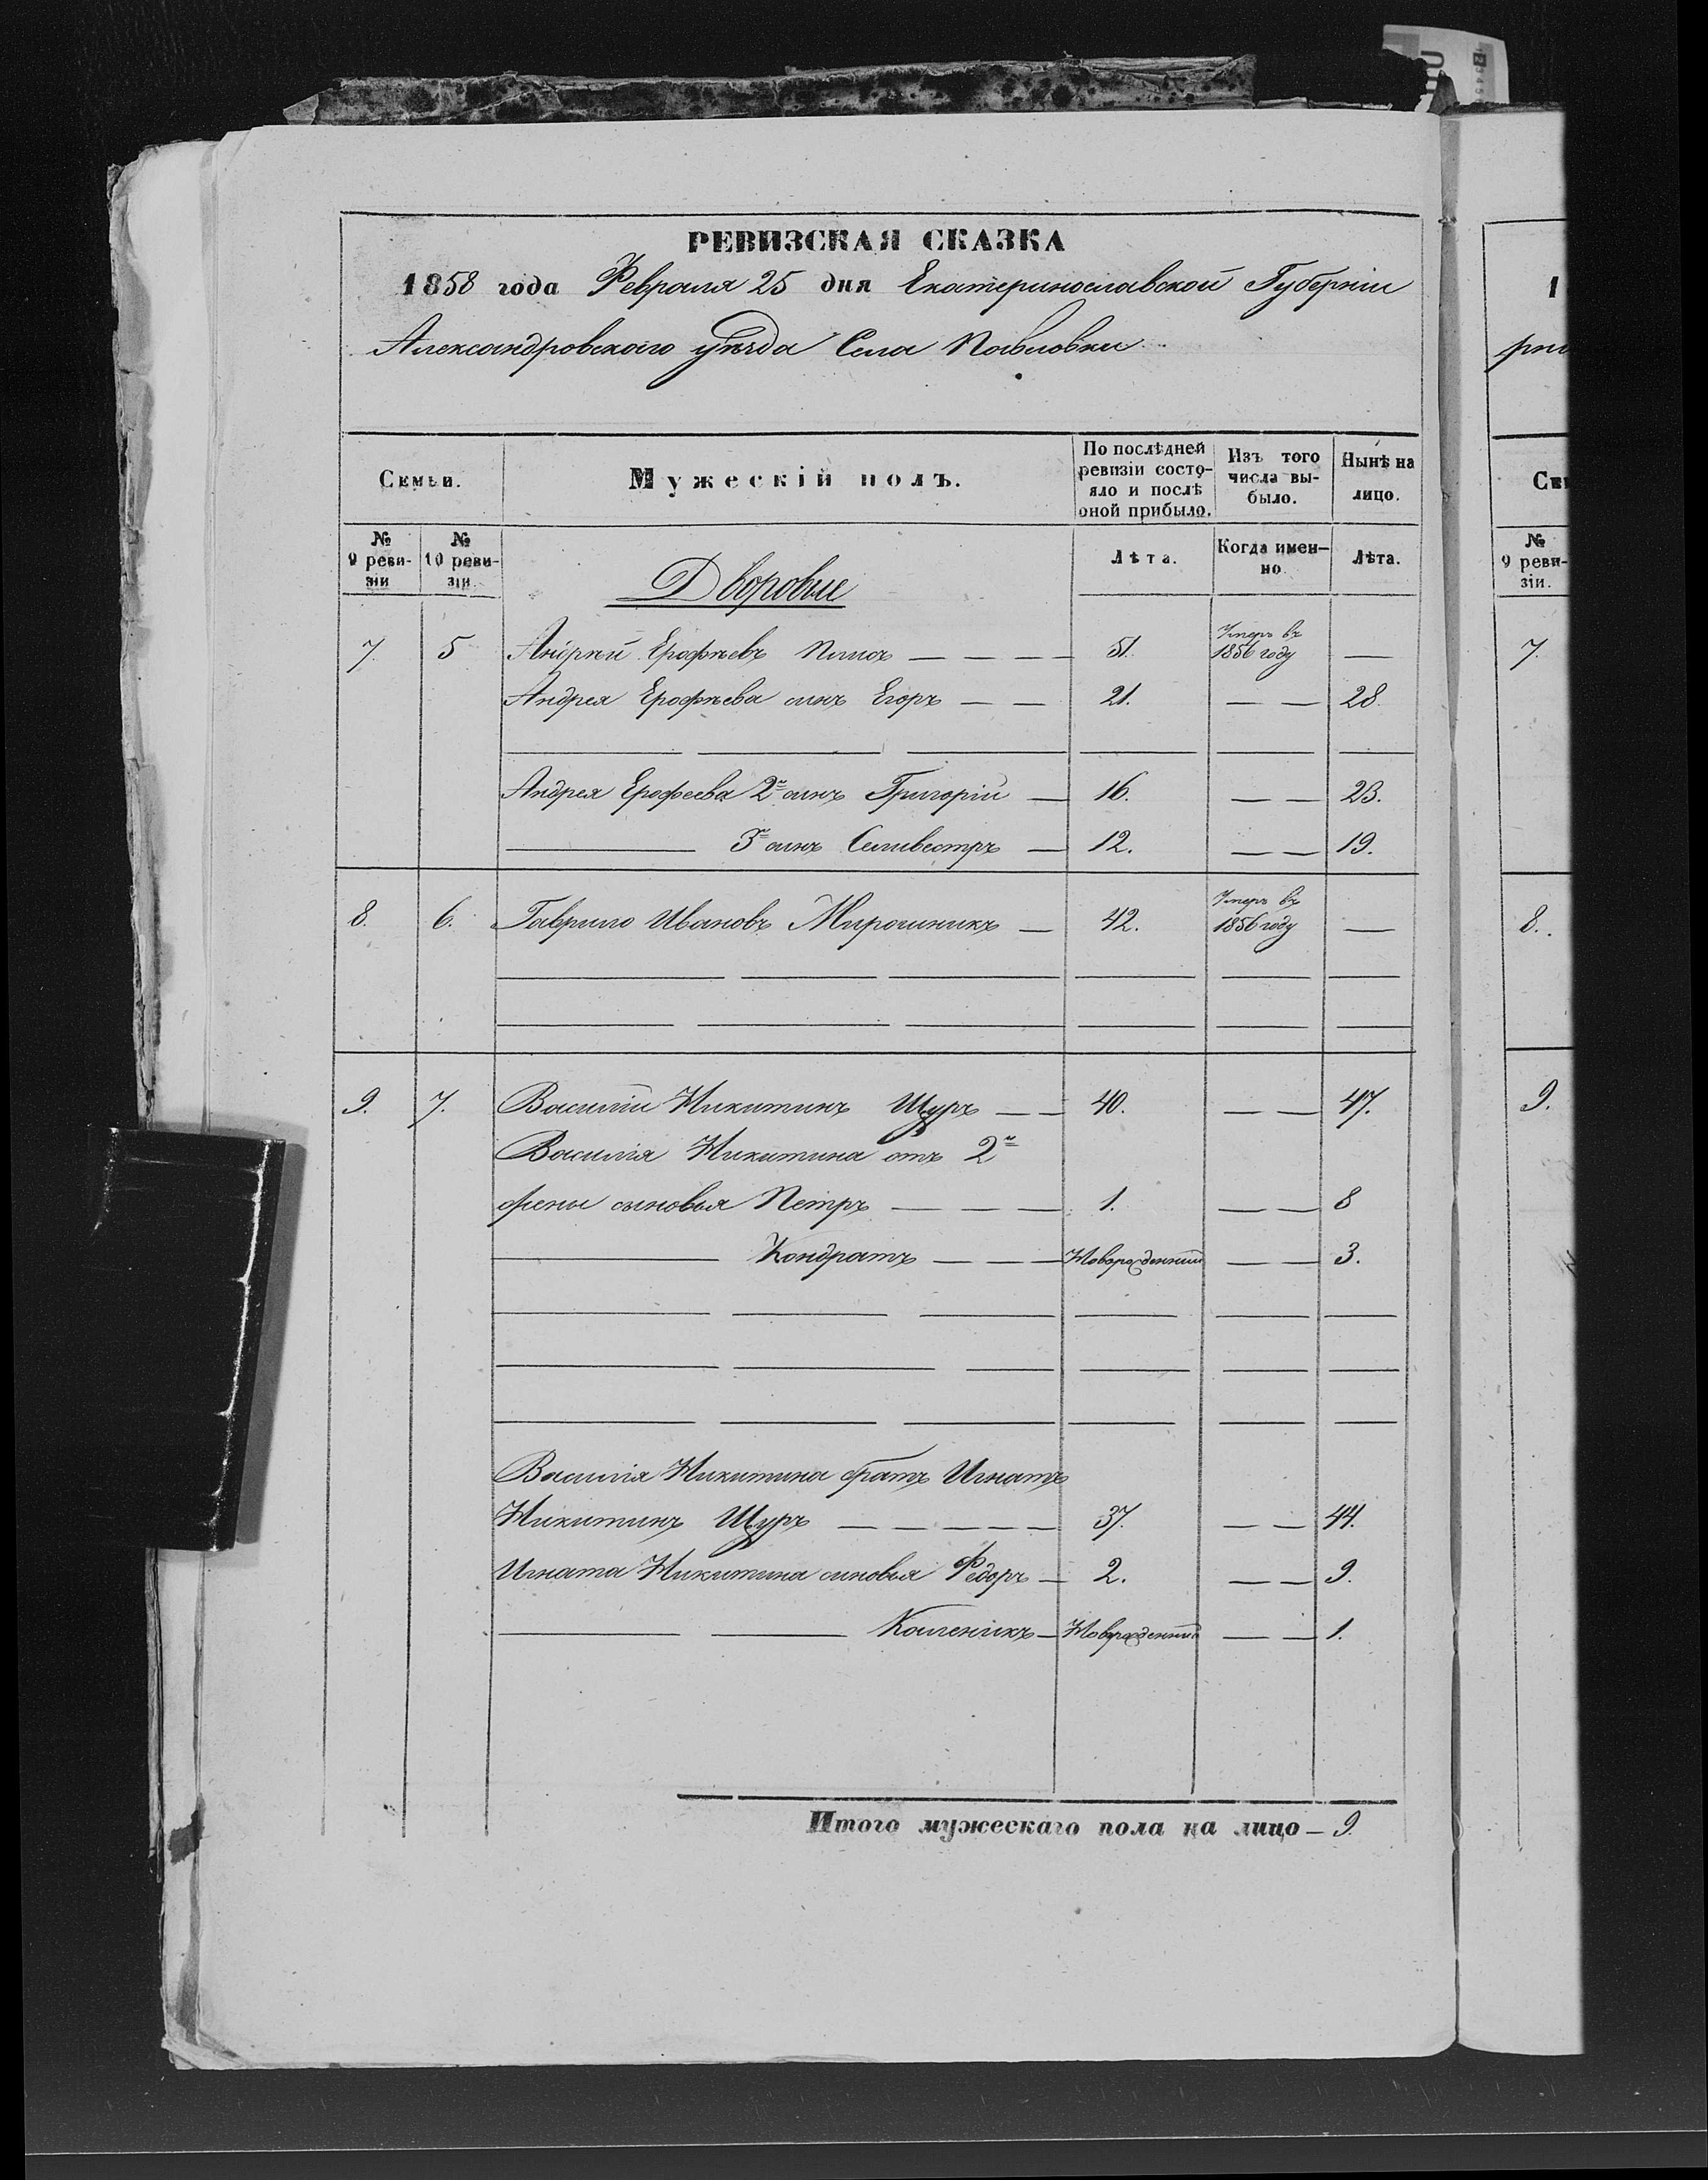 РЕВИЗСКАЯ СКАЗКА
1858 года Февраля 25 дня Екатеринославской Губерніи
Александровскаго уѣзда Села Павловки
Семьи.
Мужескій полъ.
По послѣдней ревизіи состояло и послѣ оной прибыло.
Изъ того числа выбыло.
Нынѣ на лицо.
№ 9 ревизіи
№ 10 ревизіи.
Дворовые
Лѣта.
Когда именно
Лѣта.
7. 5 Андрѣй Ерофѣевъ — — — — 51. Умеръ въ 1856 году —
Андрея Ерофѣева сынъ Егоръ — — 21. — — 28
Андрея Ерофеева 2й сынъ Григорій — 16. — — 23.
3й сынъ Селивестръ — 12. — — 19.
8. 6. Гаврило Ивановъ Мирошникъ — 42. Умеръ въ 1856 году —
9. 7. Василій Никитинъ Щуръ — — 40. — — 47.
Василія Никитина отъ 2й
жены сыновья Петръ — — — 1. — — 8
Кондратъ — — — Новорожденный — — 3.
Василія Никитина братъ Игнатъ
Никитинъ Щуръ — — — — — 37. — — 44.
Игната Никитина сыновья Федоръ — 2. — — 9.
— Новорожденный — — 1.
Итого мужескаго пола на лицо — 9.
1
рни
Сем
№
9 ревизіи.
7.
8.
9.